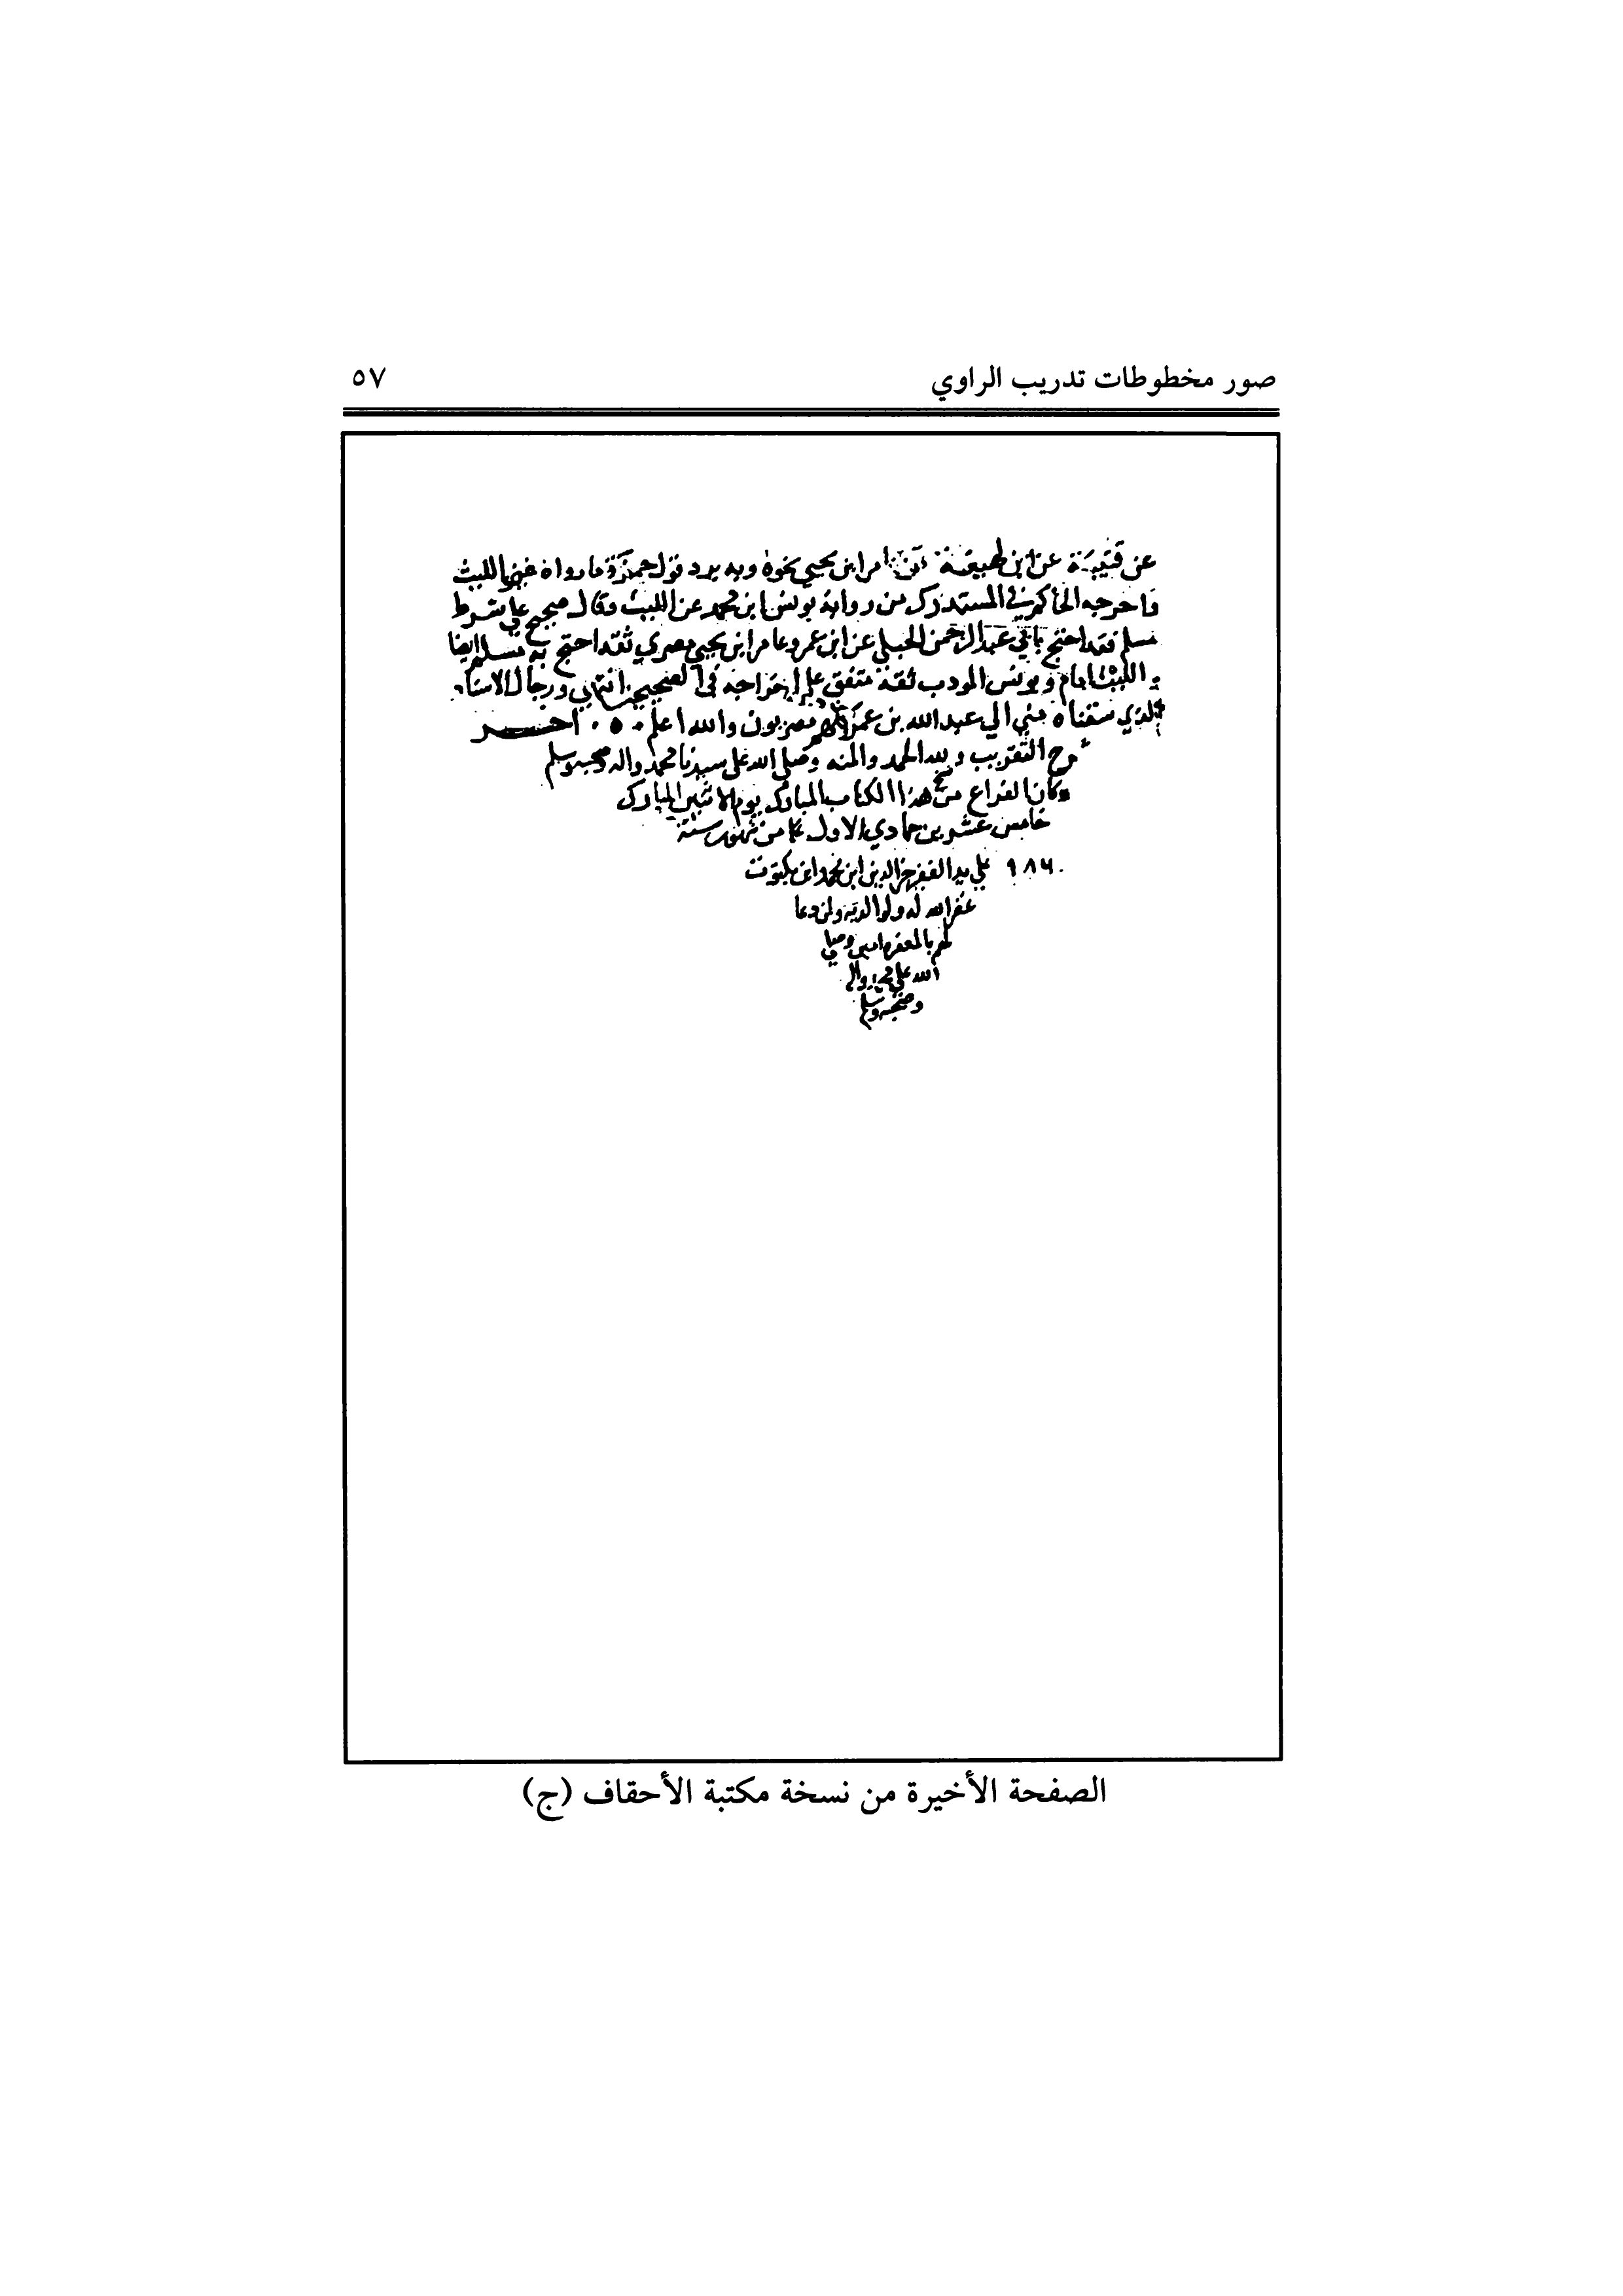 صور مخطوطات تدريب الراوي ٥٧
عن قتيبة عن ابن لهيعة عن عامر ابن يحيي نحوه وبه يرد قول حمزة ما رواه غير الليث
فاخرجه الحاكم في المستدرك من رواية يونس ابن محمد عن الليث وقال صحيح علي شرط
مسلم فقد احتج بابي عبد الرحمن الحبلي عن ابن عمرو وعامر ابن يحيي مصري ثقة احتج به مسلم ايضا
والليث امام ويونس المودب ثقة متفق علي اخراجه في الصحيحين انتهي ورجال الاسناد
الذي سقناه مني الي عبد الله بن عمرو كلهم مصريون والله اعلم . ٥ . اخر
شرح التقريب ولله الحمد والمنه وصلى الله على سيدنا محمد واله وصحبه وسلم
وكان الفراغ من نسخ هذا الكتاب المبارك يوم الاثنين المبارك
خامس عشرين جمادي الاول من شهور سنة
٩٨٦ علي يد الفقير الدين ابن محمد ابن
غفر الله له ولوالديه ولمن دعا
لهم بالمغفرة امين وصلي
الله علي محمد واله
وصحبه وسلم
الصفحة الأخيرة من نسخة مكتبة الأحقاف (ج)